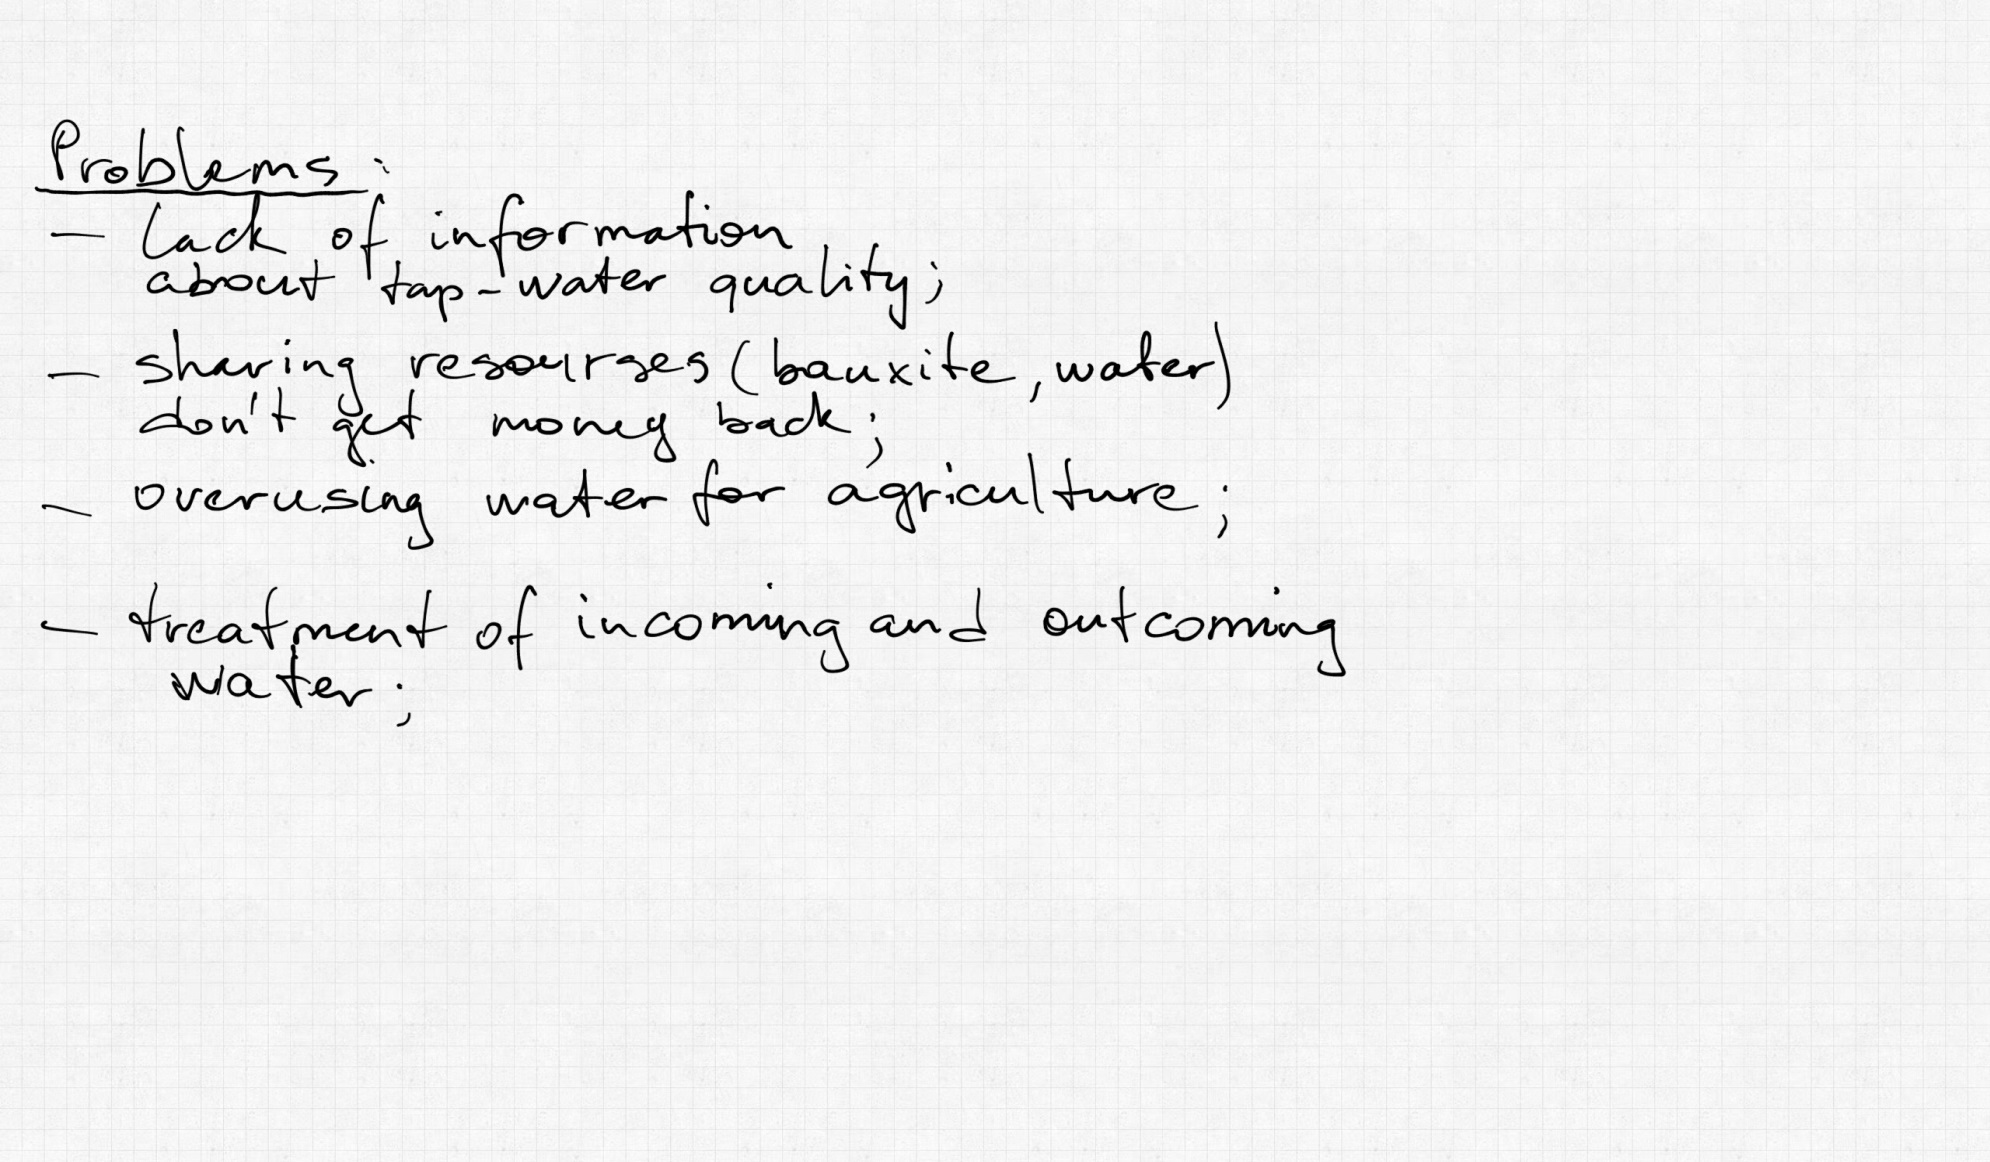 Problems:
- lack of information
about tap-water quality;
- sharing resourses (bauxite, water)
don't get money back;
- overusing water for agriculture;
- treatment of incoming and outcoming
water;